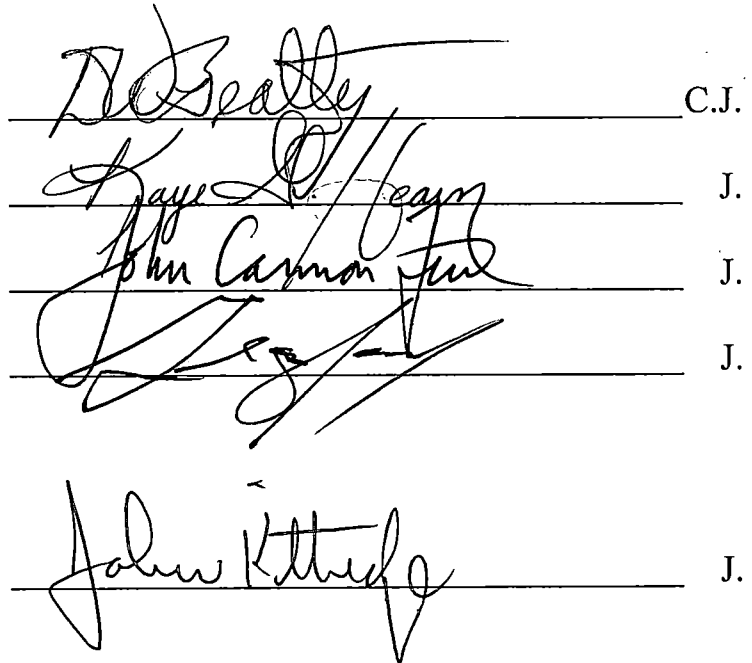 Beatty C.J.
Kaye Hearn J.
John Cannon Few J.
J.
John Kittredge J.